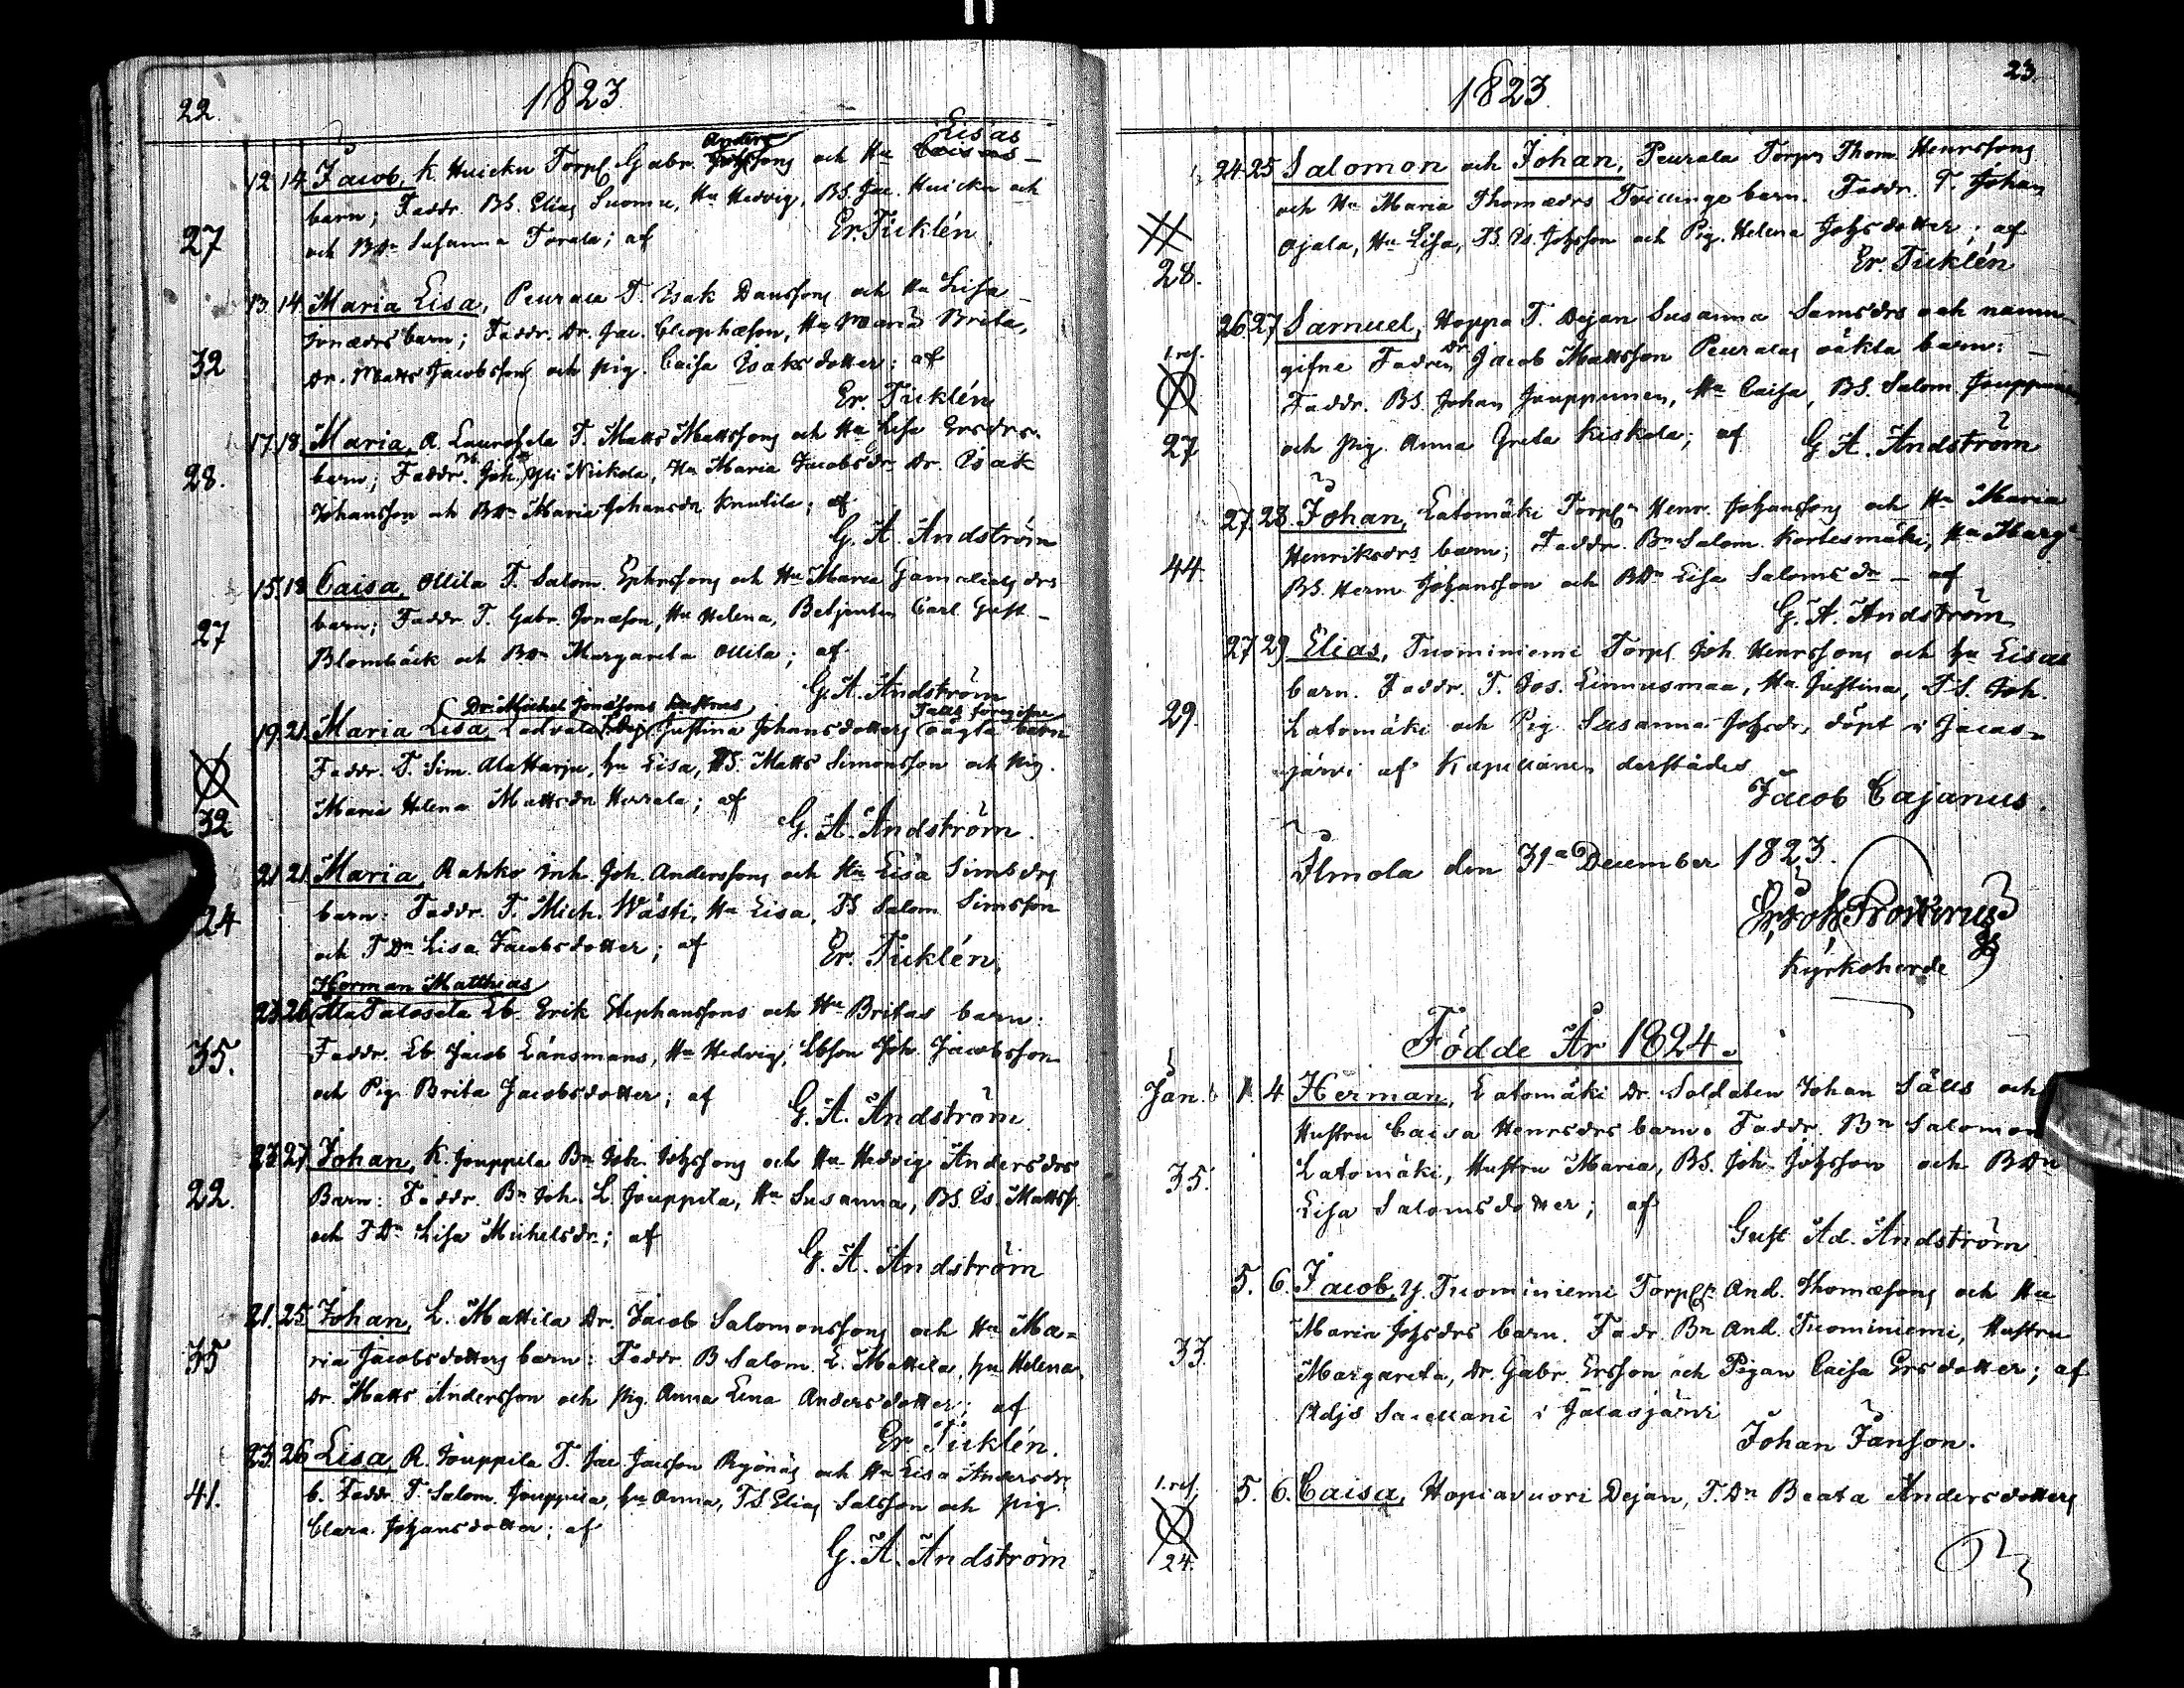 22.
1823.
Anders
Lisas
12. 14. Jacob, K. Huicku Torpf Gabr. Johssons och Hu Caisas
barn; Faddr. BS. Elias Suomu, Hu Hedvig, BS. Jac. Huicku och
27
och BDr Susanna Torala; af
Er. Ticklén
13. 14. Maria Lisa, Peurala T. Isak Danssons och Hu Lisa
Jonædrs barn; Faddr. Dr. Jac. Cleophæson, Hu Maria Brita,
32
Dr. Matts Jacobsson och pig. Caisa Isaksdotter; af
Er. Ticklén
17. 18. Maria, A. Laurosela T. Matts Mattssons och Hu Lisa Ersdrs
barn; Faddr. Joh. Yli Nickola, Hu Maria Jacobsdr, Dr. Isak
28.
Johansson och BDr Maria Johansdr Knutila; af
G. A. Andström
15. 18. Caisa, Ollila T. Salom. Ephrssons och Hu Maria Gamaliels drs
barn; Faddr. T. Gabr. Jonæson, Hu Helena, Betjenten Carl Gust.
27
Blombäck och BDr Margareta Ollila; af
G. A. Andström
Dr. Michel Jonæsons hustrus
19. 21. Maria Lisa, Ladvala Justina Johansdotters oägta barn
Faddr. T. Sim. Alaharju, hu Lisa, TS. Matts Simonsson och pig.
Maria Helena Mattsdr Herrala; af
32
G. A. Andström.
21. 21. Maria, Rahko Inh. Joh. Anderssons och Hu Lisa Simsdrs
barn: Faddr. T. Mich. Wästi, Hu Lisa, TS Salom Simsson
24
och TDr Lisa Jacobsdotter; af
Er. Ticklén,
Herman Matthias
23. 26. Ala Talosela Lb. Erik Stephanssons och Hu Britas barn:
Faddr. Lb. Jacob Länsmans, Hu Hedvig, Lbson Joh. Jacobsson
35.
och Pig. Brita Jacobsdotter; af
G. A. Andström
27. Johan, K. Jouppila Bn Joh. Johssons och Hu Hedvig Andersdrs
Barn: Faddr. Bn Joh. L. Jouppila, Hu Susanna, BS. Is. Mattss.
22.
och TDr Lisa Michelsdr; af
G. A. Andström
21. 25. Johan, L. Mattila Dr. Jacob Salomonssons och Hu Ma=
ria Jacobsdotters barn: Faddr. B Salom. L. Mattila, hu Helena,
35
Dr. Matts Andersson och pig. Anna Lena Andersdotter; af
Er Ticklén.
23. 26 Lisa, R. Jouppila T. Jac Jacsson Ryönäs och Hu Lisa Andersdrs
b. Faddr. T. Salom. Jouppila, hu Anna, TS. Elias Salsson och pig.
41.
Clara Johansdotter; af
G. A. Andström
23.
1823
24 25 Salomon och Johan, Peurala Torps Thom. Henrssons
och Hu Maria Thomædrs Tvillinge barn. Faddr. T. Johan
Ojala, Hu Lisa, TS. Is. Johsson och Pig. Helena Johsdotter; af
28.
Er. Ticklén
26. 27 Samuel, Hoppa T. Dejan Susanna Samsdrs och namn
gifne Fadren Dr Jacob Mattsson Peuralas oäkta barn:
Faddr. BS. Johan Jouppinen, Hu Caisa, BS. Salom Jouppinen
27
och pig. Anna Greta Kiskola; af
G. A. Andström
27. 28. Johan, Latomäki Torpf Henr. Johanssons och Hu Maria
Henriksdrs barn; Faddr. Bn Salom. Kortesmäki, Hu Marg.
44.
BS. Herm. Johansson och BDr Lisa Salomsdr - af
G. A. Andström
27 29. Elias, Tuominiemi Torpf. Joh. Henrssons och hu Lisas
barn. Faddr. T. Jos. Linnusmaa, Hu Justina, TS. Joh.
29.
Latomäki och Pig Susanna Johsdr, döpt i Jalas-
järvi af Kapellanen derstädes
Jacob Cajanus.
Ilmola den 31a December 1823.
Kyrkoherde
Födde År 1824.
Jan. 1. 4. Herman, Latomäki Dr. Soldaten Johan Sälls och
Hustru Caisa Henrsdrs barn. Faddr. Bn Salomon
35.
Latomäki, Hustru Maria, BS. Joh. Johsson och BDr
Lisa Salomsdotter; af
Gust Ad. Andström
5. 6. Jacob, Y. Tuominiemi Torpf. And. Thomæsons och Hu
Maria Johsdrs barn. Fadr. Bn And. Tuominiemi, Hustru
33.
Margareta, Dr. Gabr. Ersson och Pigan Caisa Ersdotter; af
Adjs Sacellani i Jalasjärvi
Johan Janson.
5. 6. Caisa, Hopiavuori Dejan, T. Dr Beata Andersdotters
24.